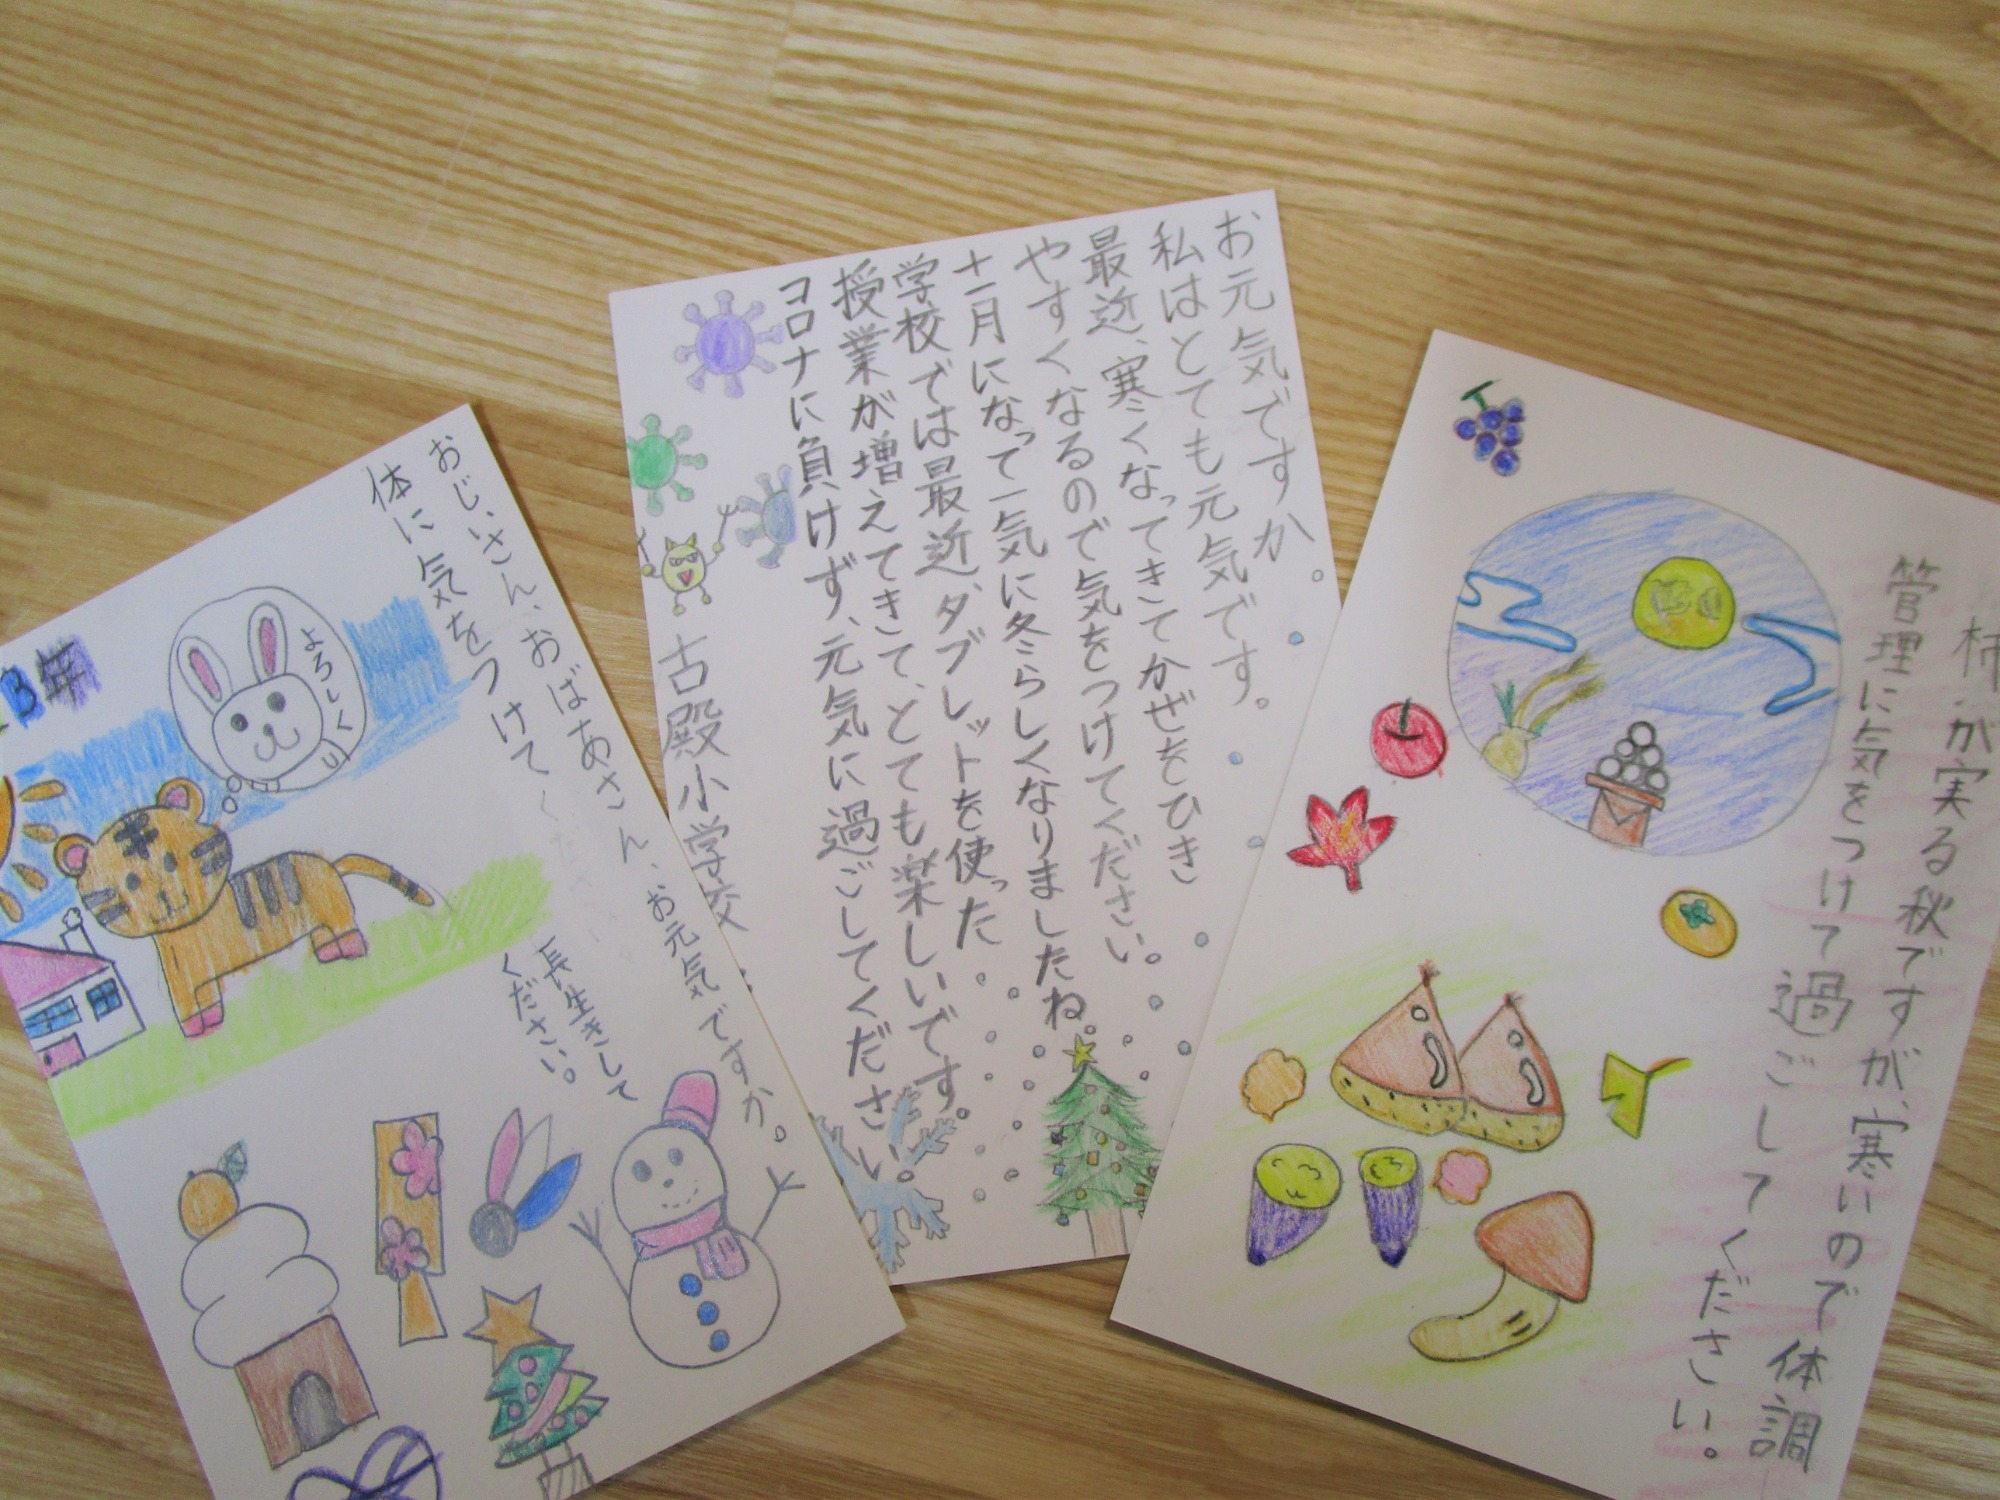 おじいさん、おばあさん、お元気ですか。
体に気をつけてください
長生きして
ください。
よろしく
3年
お元気ですか。
私はとても元気です。
最近、寒くなってきてかぜをひき
やすくなるので気をつけてください。
十一月になって一気に冬らしくなりましたね。
学校では最近、タブレットを使った
授業が増えてきて、とても楽しいです。
コロナに負けず、元気に過ごしてください。
古殿小学校
柿が実る秋ですが、寒いので体調
管理に気をつけて過ごしてください。